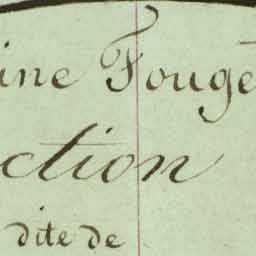 ine Fougè
ction
dite de